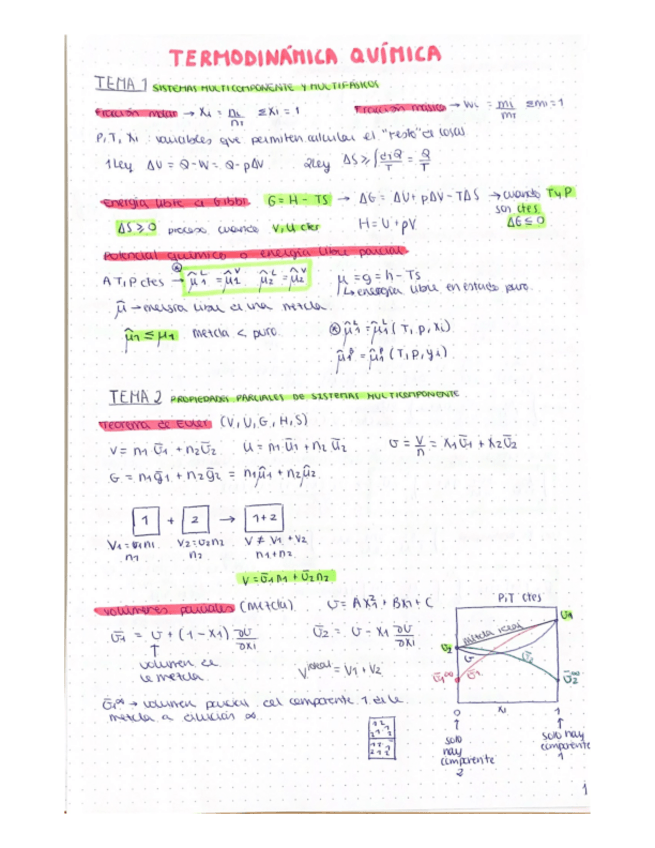 TERMODINÁMICA QUÍMICA
TEMA 1 SISTEMAS MULTICOMPONENTE Y MULTIFÁSICOS
Fracción molar → xi = ni/nT Σxi = 1 Fracción másica → wi = mi/mT Σmi = 1
P, T, xi: variables que permiten calcular el "resto" de cosas
1 Ley ΔU = Q - W = Q - pΔV 2 Ley ΔS ≥ ∫dQ/T = Q/T
Energía libre de Gibbs G = H - TS → ΔG = ΔU + pΔV - TΔS → cuando T y P
son ctes.
ΔS ≥ 0 proceso cuando V, U ctes H = U + pV ΔG ≤ 0
Potencial químico o energía libre parcial
A T, P ctes → μ̂1^L = μ̂1^V μ̂2^L = μ̂2^V μ = g = h - Ts
↳ energía libre en estado puro.
μ̂ → energía libre de una mezcla.
μ̂1 ≤ μ1 mezcla < puro. μ̂1^L = μ̂1^L (T, p, xi)
(T, p, yi)
TEMA 2 PROPIEDADES PARCIALES DE SISTEMAS MULTICOMPONENTE
Teorema de Euler (V, U, G, H, S)
V = n1 v̄1 + n2 v̄2 U = n1 ū1 + n2 ū2 v = V/n = x1 v̄1 + x2 v̄2
G = n1 ḡ1 + n2 ḡ2 = n1 μ̂1 + n2 μ̂2
1 + 2 → 1+2
V1 = v1n1 V2 = v2n2 V ≠ V1 + V2
n1 n2 n1+n2
V = v̄1 n1 + v̄2 n2
Volúmenes parciales (mezcla) v = Ax1² + Bx1 + C
v̄1 = v + (1 - x1) ∂v/∂x1 v̄2 = v - x1 ∂v/∂x1
↑
volumen de
la mezcla
V ideal = V1 + V2
v̄1∞ → volumen parcial del componente 1 de la
mezcla a dilución ∞.
P, T ctes
v1
mezcla ideal
v2
v
v̄2
v̄1∞
v̄1
v̄2∞
0 x1 1
↑ ↑
solo hay componente 2
solo hay componente 1
1